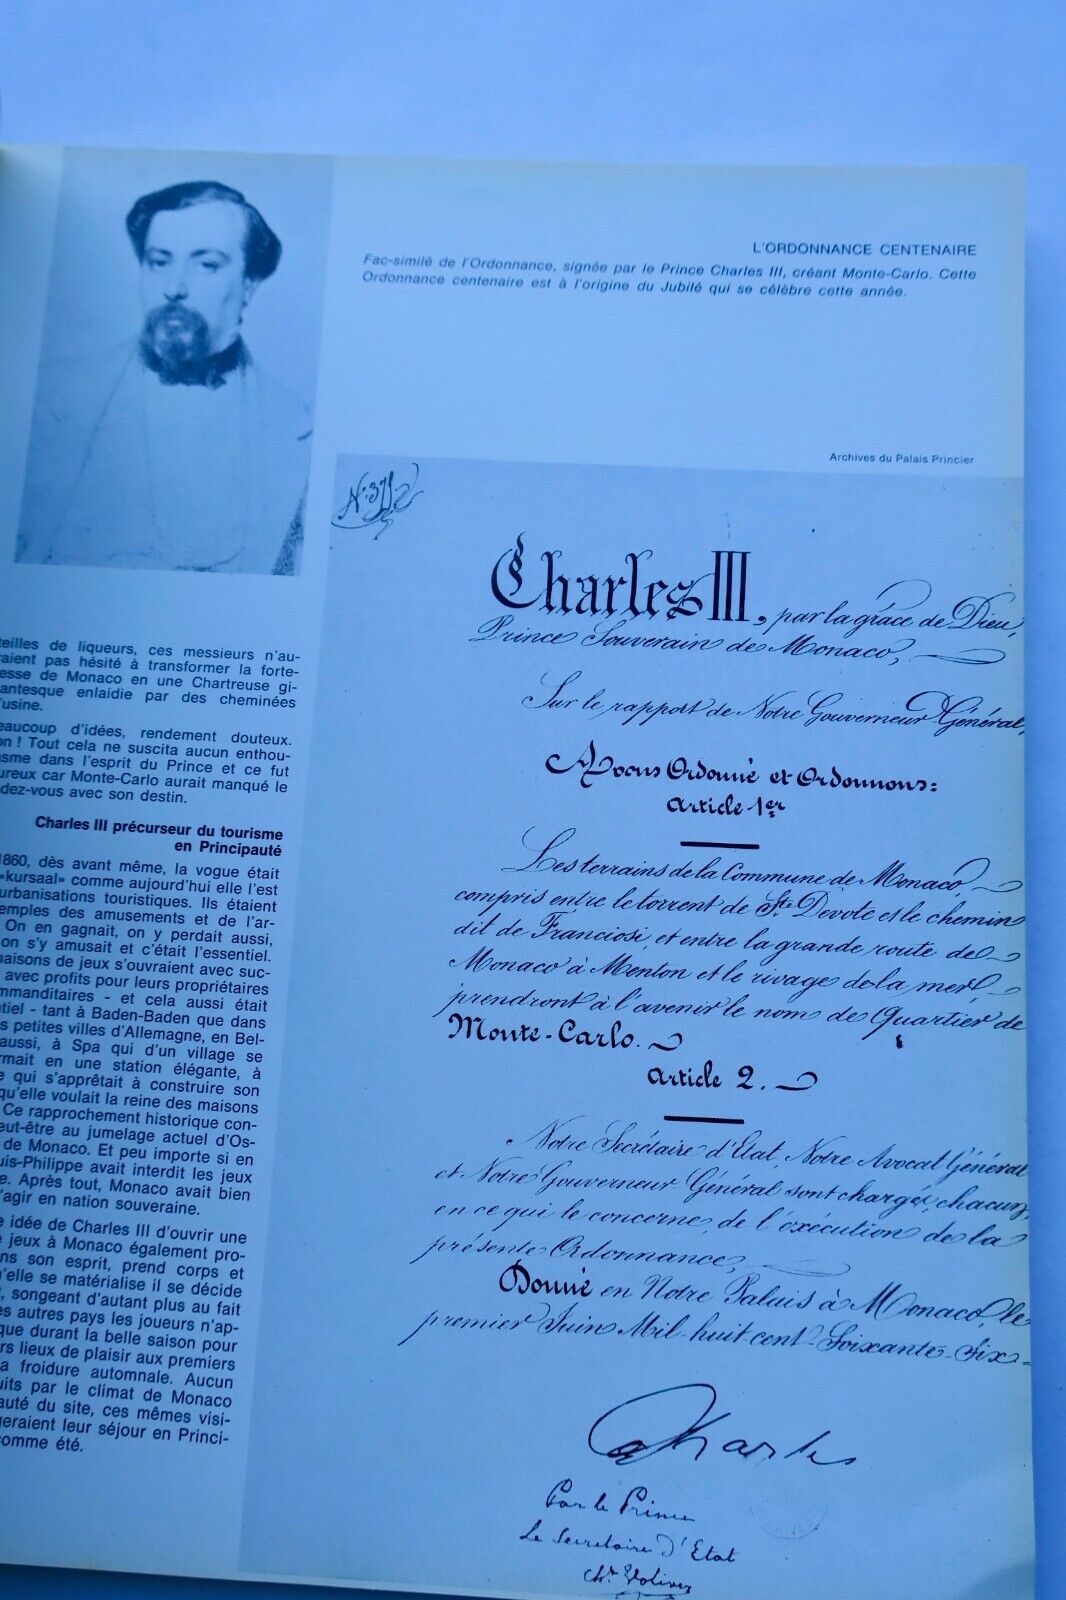 L'ORDONNANCE CENTENAIRE
Fac-similé de l'Ordonnance, signée par le Prince Charles III, créant Monte-Carlo. Cette
Ordonnance centenaire est à l'origine du Jubilé qui se célèbre cette année.
Archives du Palais Princier
teilles de liqueurs, ces messieurs n'au-
raient pas hésité à transformer la forte-
esse de Monaco en une Chartreuse gi-
antesque enlaidie par des cheminées
'usine.
eaucoup d'idées, rendement douteux.
on ! Tout cela ne suscita aucun enthou-
asme dans l'esprit du Prince et ce fut
ureux car Monte-Carlo aurait manqué le
dez-vous avec son destin.
Charles III précurseur du tourisme
en Principauté
1860, dès avant même, la vogue était
«kursaal» comme aujourd'hui elle l'est
urbanisations touristiques. Ils étaient
emples des amusements et de l'ar-
On en gagnait, on y perdait aussi,
on s'y amusait et c'était l'essentiel.
aisons de jeux s'ouvraient avec suc-
avec profits pour leurs propriétaires
mmanditaires - et cela aussi était
tiel - tant à Baden-Baden que dans
s petites villes d'Allemagne, en Bel-
aussi, à Spa qui d'un village se
rmait en une station élégante, à
e qui s'apprêtait à construire son
qu'elle voulait la reine des maisons
Ce rapprochement historique con-
eut-être au jumelage actuel d'Os-
de Monaco. Et peu importe si en
uis-Philippe avait interdit les jeux
e. Après tout, Monaco avait bien
'agir en nation souveraine.
e idée de Charles III d'ouvrir une
e jeux à Monaco également pro-
ns son esprit, prend corps et
u'elle se matérialise il se décide
, songeant d'autant plus au fait
es autres pays les joueurs n'ap-
que durant la belle saison pour
rs lieux de plaisir aux premiers
a froidure automnale. Aucun
uits par le climat de Monaco
auté du site, ces mêmes visi-
geraient leur séjour en Princi-
comme été.
Charles III, par la grâce de Dieu,
Prince Souverain de Monaco,
Sur le rapport de Notre Gouverneur Général,
Avons Ordonné et Ordonnons:
Article 1er
Les terrains de la Commune de Monaco,
compris entre le torrent de Ste Dévote et le chemin
dit de Franciosi, et entre la grande route de
Monaco à Menton et le rivage de la mer,
prendront à l'avenir le nom de Quartier de
Monte-Carlo.
Article 2.
Notre Secrétaire d'Etat, Notre Avocat Général
et Notre Gouverneur Général sont chargés, chacun
en ce qui le concerne, de l'exécution de la
présente Ordonnance,
Donné en Notre Palais à Monaco, le
premier Juin Mil-huit-cent-Soixante-Six
Charles
Par le Prince
Le Secrétaire d'Etat